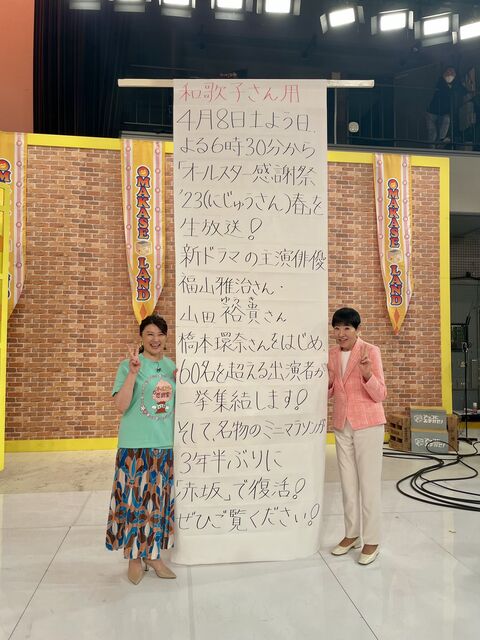 和歌子さん用
4月8日土よう日、
よる6時30分から
「オールスター感謝祭
'23(にじゅうさん)春」を
生放送!
新ドラマの主演俳優
福山雅治さん・
ゆうき
山田 裕貴さん
橋本環奈さんをはじめ、
60名を超える出演者が
一挙集結します!
そして、名物のミニマラソンが
3年半ぶりに
「赤坂」で復活!
ぜひご覧ください!
OMAKASE LAND
OMAKASE LAND